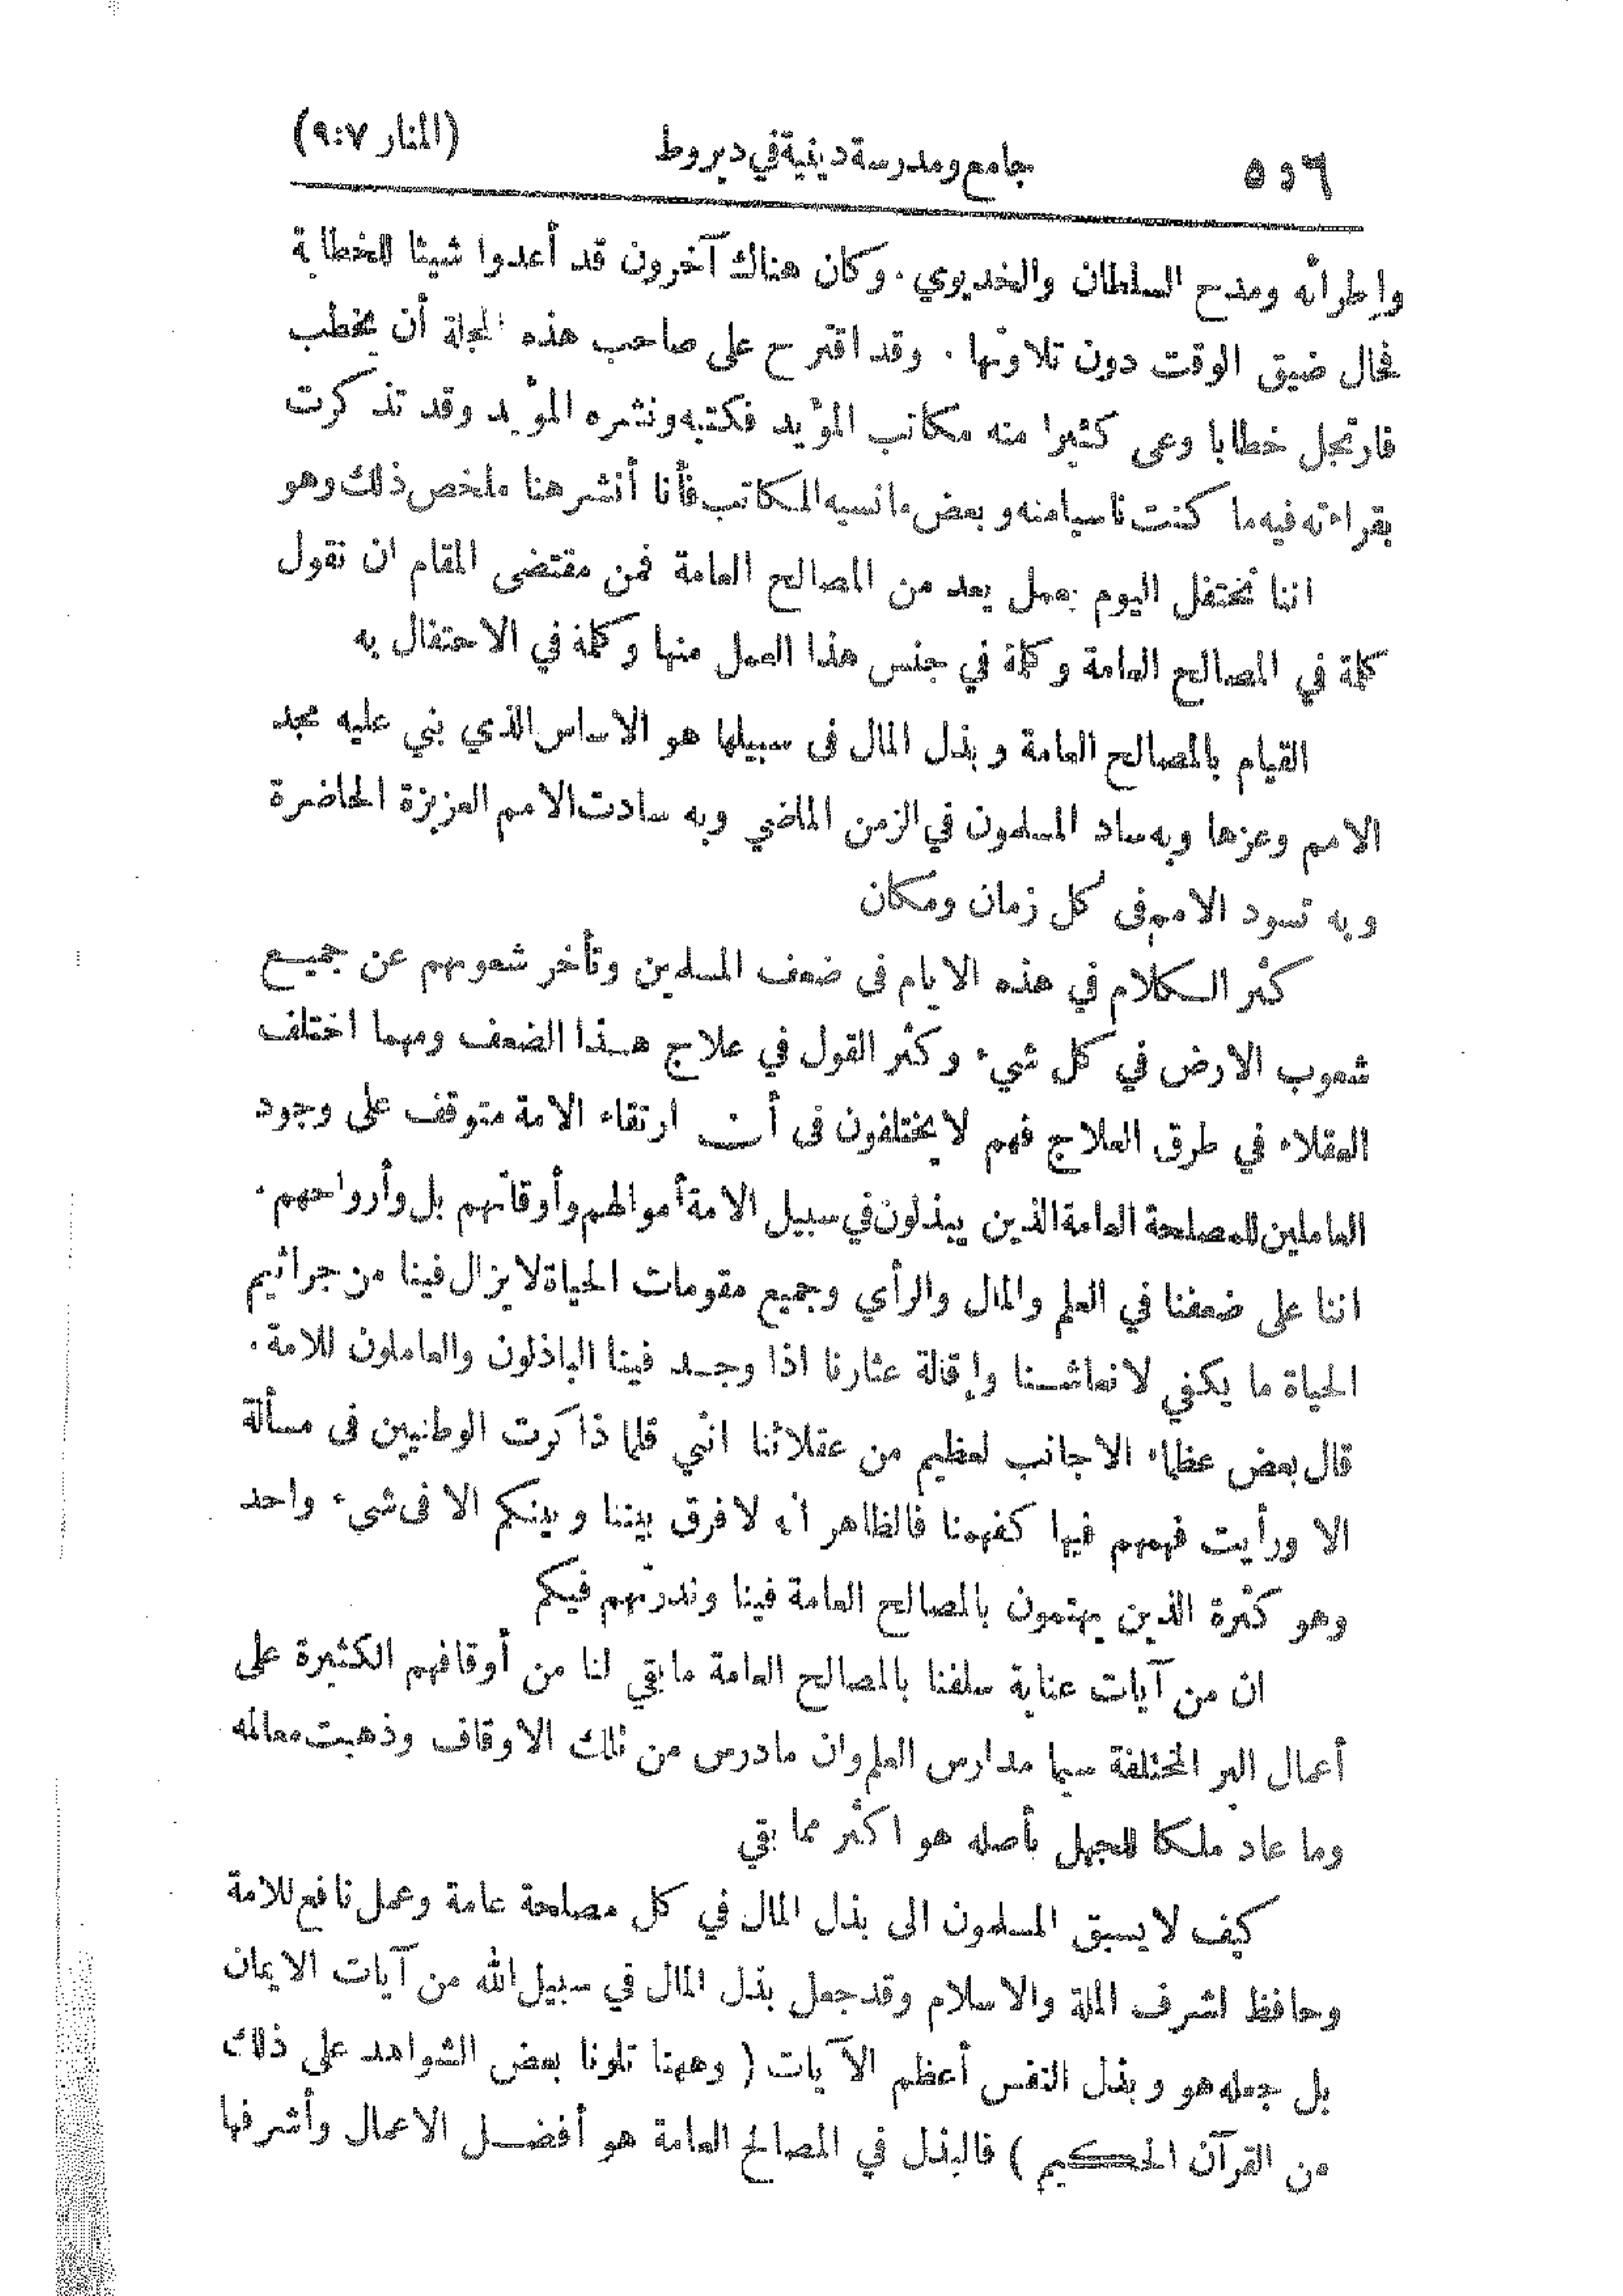 ٥٥٦ جامع ومدرسة دينية في ديروط (المنار ٩:٧)
وإطرائه ومدح السلطان والخديوي. وكان هناك آخرون قد أعدوا شيئا للخطابة
فحال ضيق الوقت دون تلاوتها. وقد اقترح على صاحب هذه المجلة أن يخطب
فارتجل خطابا وعى كثيرا منه مكاتب المؤيد فكتبه ونشره المؤيد وقد تذكرت
بقراءته فيه ما كنت ناسيا منه وبعض ما نسيه المكاتب فأنا أنشر هنا ملخص ذلك وهو
اننا نحتفل اليوم بعمل يعد من المصالح العامة فمن مقتضى المقام ان نقول
كلمة في المصالح العامة وكلمة في جنس هذا العمل منها وكلمة في الاحتفال به
القيام بالمصالح العامة وبذل المال فى سبيلها هو الاساس الذي بني عليه مجد
الامم وعزها وبه ساد المسلمون في الزمن الماضي وبه سادت الامم العزيزة الحاضرة
وبه تسود الامم فى كل زمان ومكان
كثر الكلام في هذه الايام فى ضعف المسلمين وتأخر شعوبهم عن جميع
شعوب الارض في كل شيء وكثر القول في علاج هذا الضعف ومهما اختلف
العقلاء في طرق العلاج فهم لا يختلفون فى أن ارتقاء الامة متوقف على وجود
العاملين للمصلحة العامة الذين يبذلون في سبيل الامة أموالهم وأوقاتهم بل وأرواحهم.
اننا على ضعفنا في العلم والمال والرأي وجميع مقومات الحياة لا يزال فينا من جراثيم
الحياة ما يكفي لانعاشنا وإقالة عثارنا اذا وجد فينا الباذلون والعاملون للامة.
قال بعض عظماء الاجانب لعظيم من عقلائنا انني قلما ذاكرت الوطنيين فى مسألة
الا ورأيت فهمهم فيها كفهمنا فالظاهر أنه لا فرق بيننا وبينكم الا فى شيء واحد
وهو كثرة الذين يهتمون بالمصالح العامة فينا وندرتهم فيكم
ان من آيات عناية سلفنا بالمصالح العامة ما بقي لنا من أوقافهم الكثيرة على
أعمال البر المختلفة سيما مدارس العلم وان ما درس من تلك الاوقاف وذهبت معالمه
وما عاد ملكا للجهل بأصله هو اكثر مما بقي
كيف لا يسبق المسلمون الى بذل المال في كل مصلحة عامة وعمل نافع للامة
وحافظ لشرف الملة والاسلام وقد جعل بذل المال في سبيل الله من آيات الايمان
بل جعله هو وبذل النفس أعظم الآيات ( وههنا تلونا بعض الشواهد على ذلك
من القرآن الحكيم ) فالبذل في المصالح العامة هو أفضل الاعمال وأشرفها